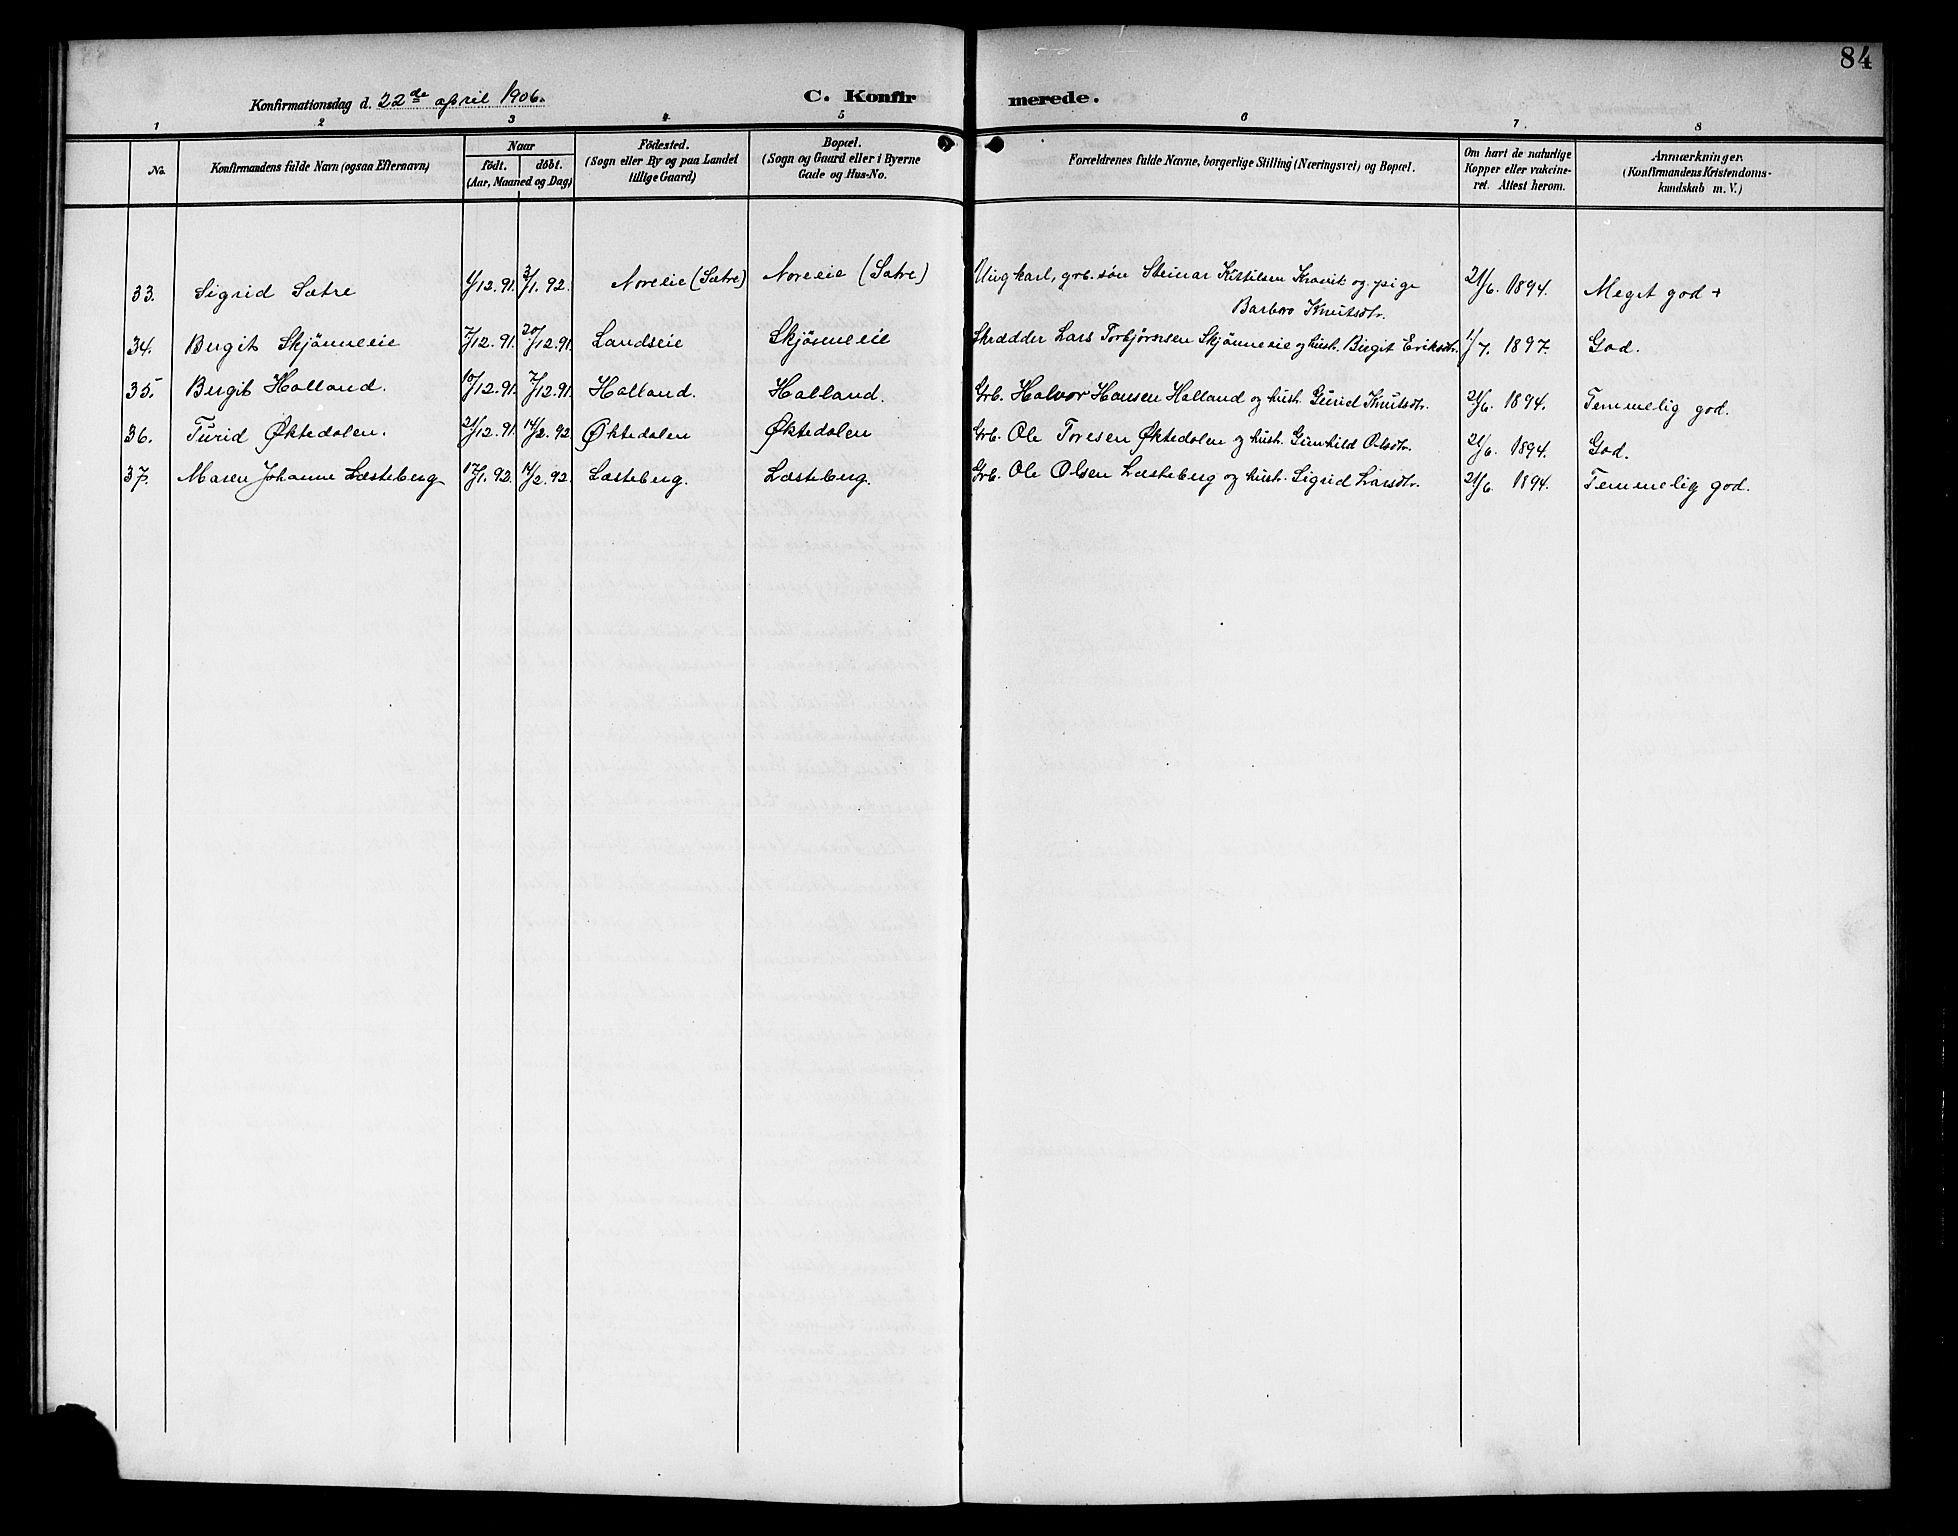 84
Konfirmationsdag d. 22de april 1906.
C. Konfirmerede.
1 2 3 4 5 6 7 8
No. Konfirmandens fulde Navn (ogsaa Efternavn) Naar födt. döbt. (Aar, Maaned og Dag) Födested. (Sogn eller By og paa Landet tillige Gaard) Bopæl. (Sogn og Gaard eller i Byerne Gade og Hus-No. Forældrenes fulde Navne, borgerlige Stilling (Næringsvei) og Bopæl. Om havt de naturlige Kopper eller vakcineret. Attest herom. Anmærkninger. (Konfirmandens Kristendomskundskab m. V.)
33. Sigrid Sætre 1/12.91. 3/1.92. Noreeie (Sætre) Noreeie (Sætre) Ungkarl, grb. søn Steinar Kittilsen Kravik og pige 21/6. 1894. Meget god +
Barbro Knutsdtr.
34. Birgit Skjønneeie 7/12.91. 20/12.91. Landseie Skjønneeie Skrædder Lars Torbjørnsen Skjønneeie og hust. Birgit Eriksdtr. 1/7. 1897. God.
35. Birgit Holland. 10/12.91. 7/12.91. Holland. Holland. Grb. Halvor Hansen Holland og hust. Gunild Knutsdtr. 21/6. 1894. Temmelig god.
36. Turid Øktedalen. 21/12.91. 14/2.92 Øktedalen Øktedalen Grb. Ole Toresen Øktedalen og hust. Gunhild Olsdtr. 21/6. 1894. God.
37. Maren Johanne Læsteberg 17/1.92. 14/2.92. Læsteberg. Læsteberg. Grb. Ole Olsen Læsteberg og hust. Sigrid Larsdtr. 21/6. 1894. Temmelig god.